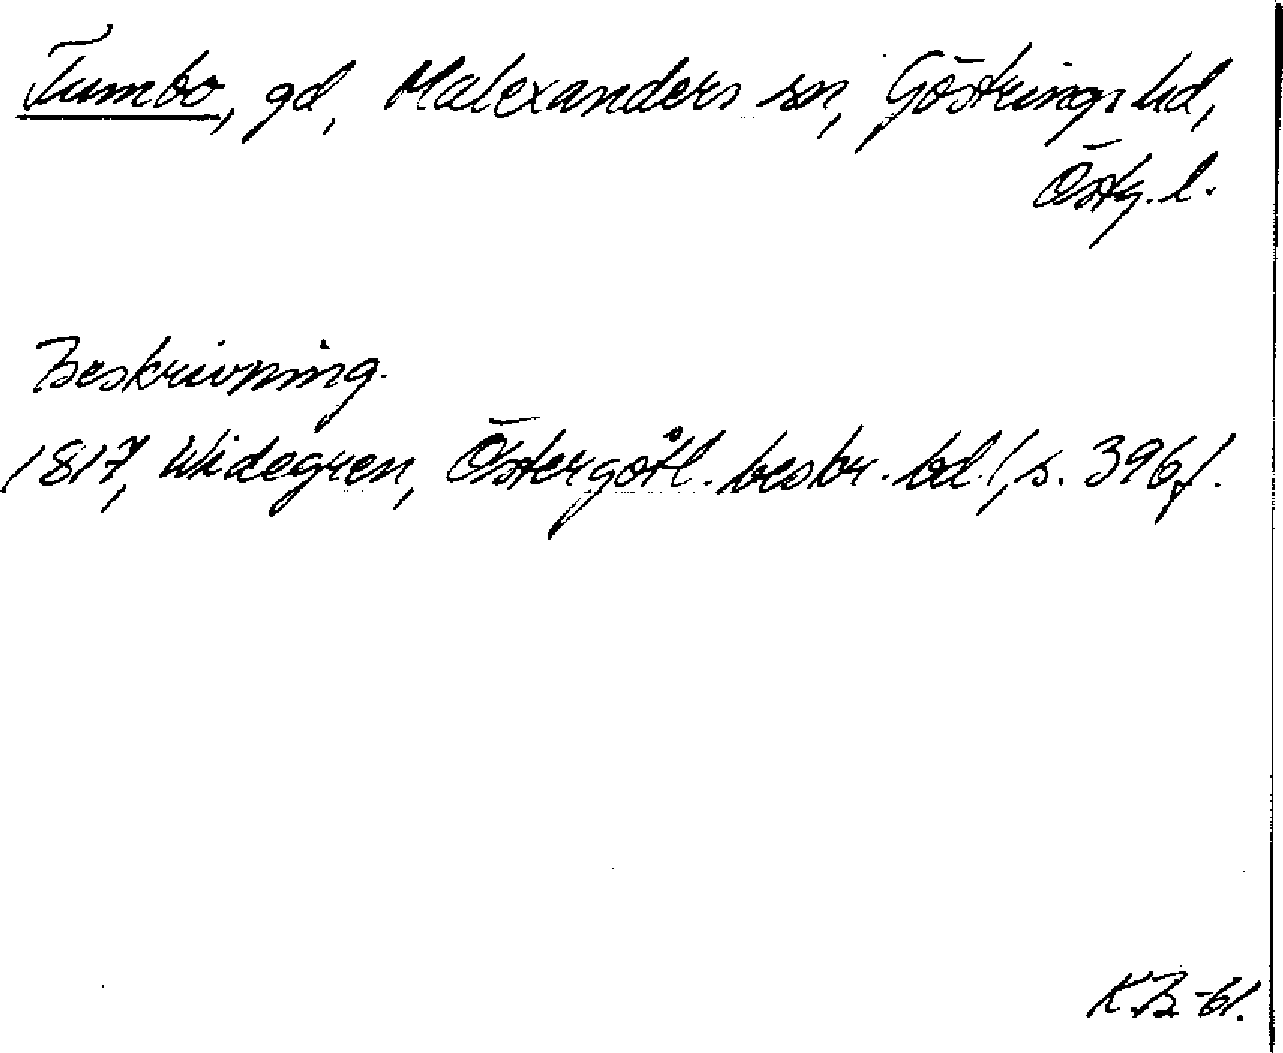 Tumbo, gd, Malexanders sn, Göstrings hd,
Östg. l.
Beskrivning.
1817, Widegren, Östergötl. beskr. bd. 1, s. 396f.
KB-61.